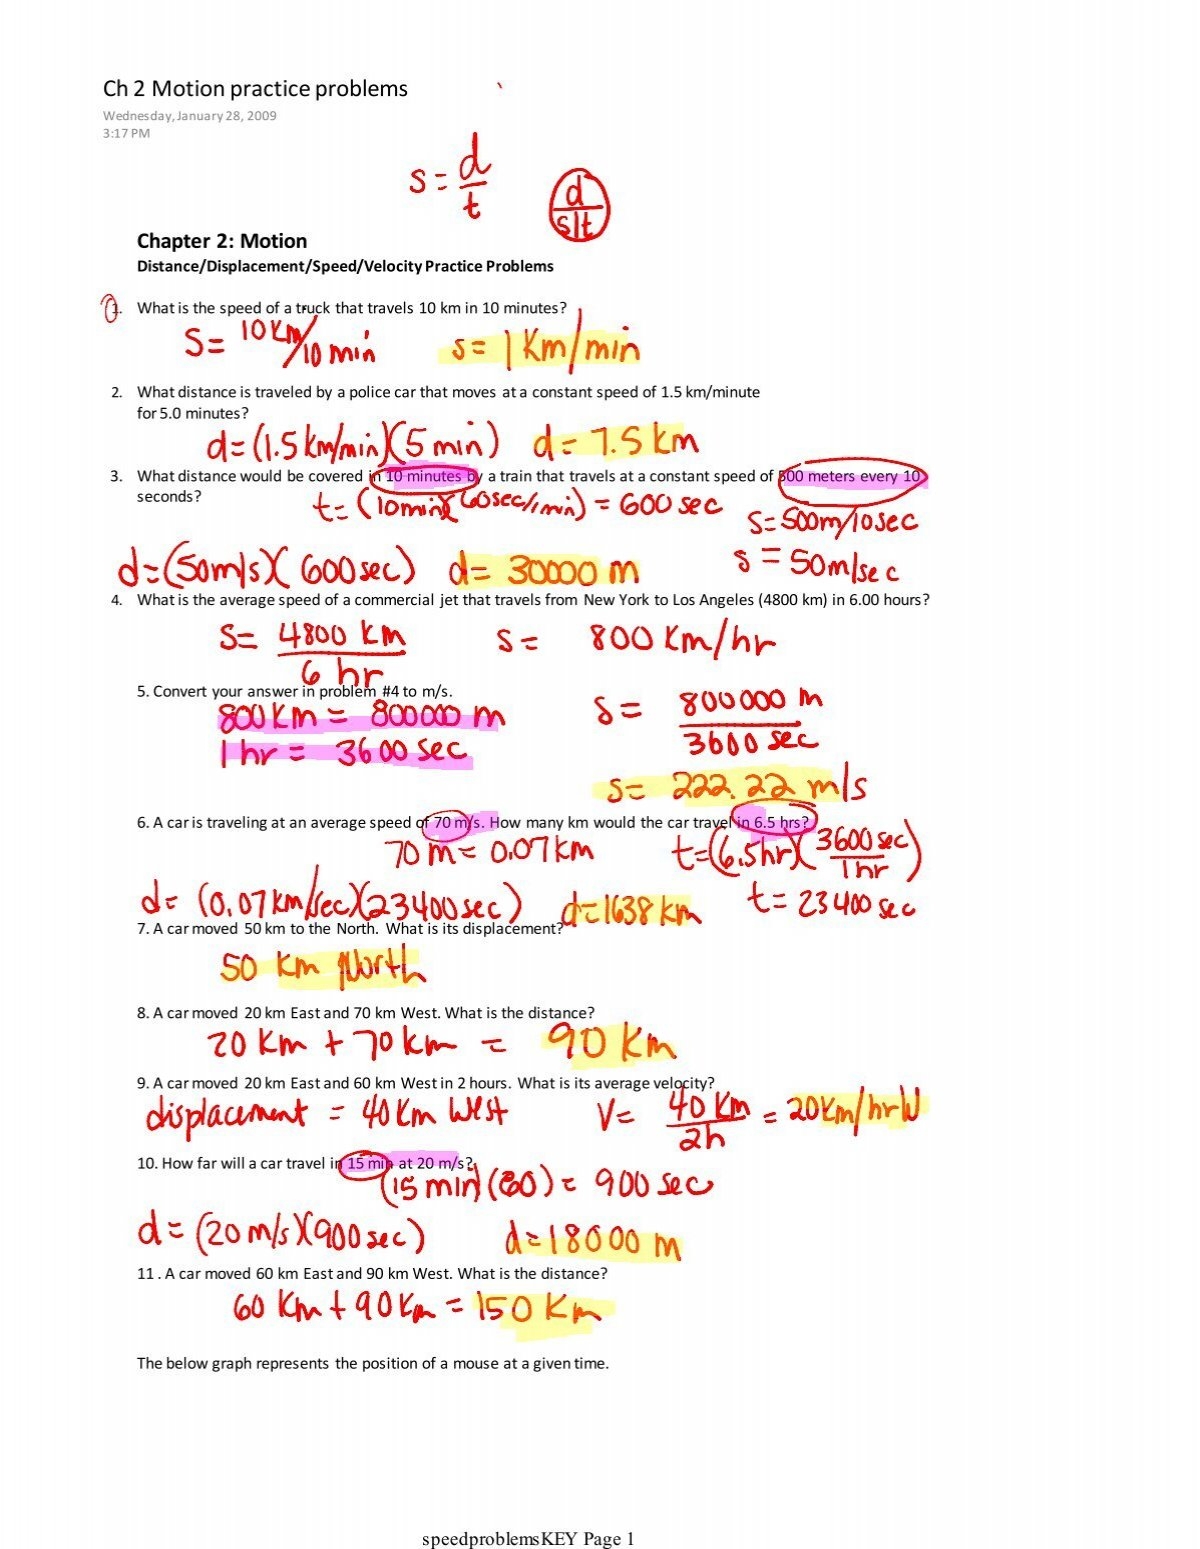 Ch 2 Motion practice problems
Wednesday, January 28, 2009
3:17 PM
s = d/t
d
s|t
Chapter 2: Motion
Distance/Displacement/Speed/Velocity Practice Problems
1. What is the speed of a truck that travels 10 km in 10 minutes?
S= 10 Km/10 min s= 1 Km/min
2. What distance is traveled by a police car that moves at a constant speed of 1.5 km/minute
for 5.0 minutes?
d=(1.5 km/min)(5 min) d= 7.5 km
3. What distance would be covered in 10 minutes by a train that travels at a constant speed of 500 meters every 10
seconds?
t= (10min)(60sec/1min) = 600 sec
S=500m/10sec
s = 50m/sec
d=(50m/s)(600sec) d= 30000 m
4. What is the average speed of a commercial jet that travels from New York to Los Angeles (4800 km) in 6.00 hours?
S= 4800 km/6 hr s= 800 Km/hr
5. Convert your answer in problem #4 to m/s.
800Km = 800000 m
1 hr = 3600 sec
s= 800000 m/3600 sec
s= 222.22 m/s
6. A car is traveling at an average speed of 70 m/s. How many km would the car travel in 6.5 hrs?
70m= 0.07km t=(6.5hr)(3600sec/1hr)
t= 23400 sec
d= (0.07km/sec)(23400sec) d=1638 km
7. A car moved 50 km to the North. What is its displacement?
50 km North
8. A car moved 20 km East and 70 km West. What is the distance?
20 Km + 70 km = 90 km
9. A car moved 20 km East and 60 km West in 2 hours. What is its average velocity?
displacement = 40 Km West V= 40 Km/2h = 20 Km/hr W
10. How far will a car travel in 15 min at 20 m/s?
(15 min)(60)= 900 sec
d= (20 m/s)(900 sec) d=18000 m
11. A car moved 60 km East and 90 km West. What is the distance?
60 Km + 90 Km = 150 Km
The below graph represents the position of a mouse at a given time.
speedproblemsKEY Page 1